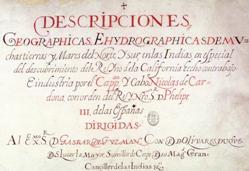 DESCRIPCIONES
GEOGRAPHICAS, E HYDROGRAPHICAS DE MU
chas tierras y Mares del Norte, y Sur, en las Indias, en especial
del descubrimiento del Reyno de la California, hecho con trabajo
E industria por el Cappⁿ y Cabo Nicolas de Car
dona, con orden del Rey Nro S. D. Phelipe
III. de las Españas
DIRIGIDAS
Al EXᵐᵒ Sʳ D. GASPAR DE GUZMAN, CONDE DE OLIVARES DUQUE
De S. Lucar la Mayor, Sumiller de Corps Gran
Canciller de las Indias &